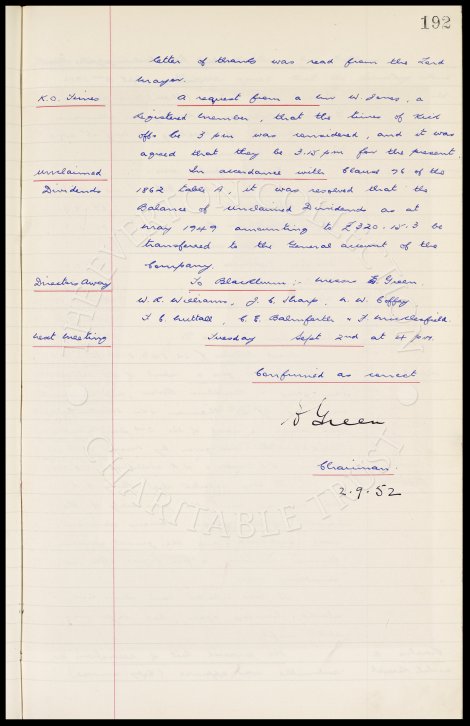 192
letter of thanks was read from the Lord
Mayor.
K.O. Times
A request from a Mr W. Jones, a
registered member, that the times of Kick
offs be 3 pm was considered, and it was
agreed that they be 3.15 pm for the present.
Unclaimed
Dividends
In accordance with Clause 76 of the
1862 Table A, it was resolved that the
Balance of Unclaimed Dividends as at
May 1949 amounting to £320.15.3 be
transferred to the General account of the
Company.
Directors Away
To Blackburn :- Messrs Green,
W. R. Williams, J. C. Sharp, N. W. Coffey,
T. C. Nuttall C. E. Balmforth & F. Micklesfield.
Next Meeting
Tuesday Sept 2nd at 4 p.m.
Confirmed as correct
Green
Chairman.
2.9.52
THE EVERTON COLLECTION
CHARITABLE TRUST